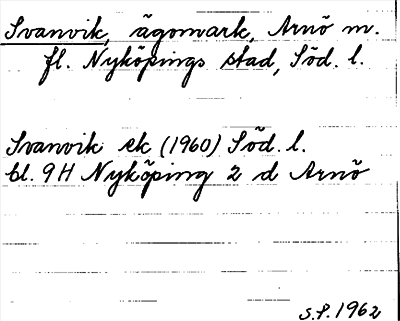 Svanvik, ägomark, Arnö m.
fl. Nyköpings stad, Söd. l.
Svanvik ek (1960) Söd. l.
bl. 9H Nyköping 2 d Arnö
S.P. 1962